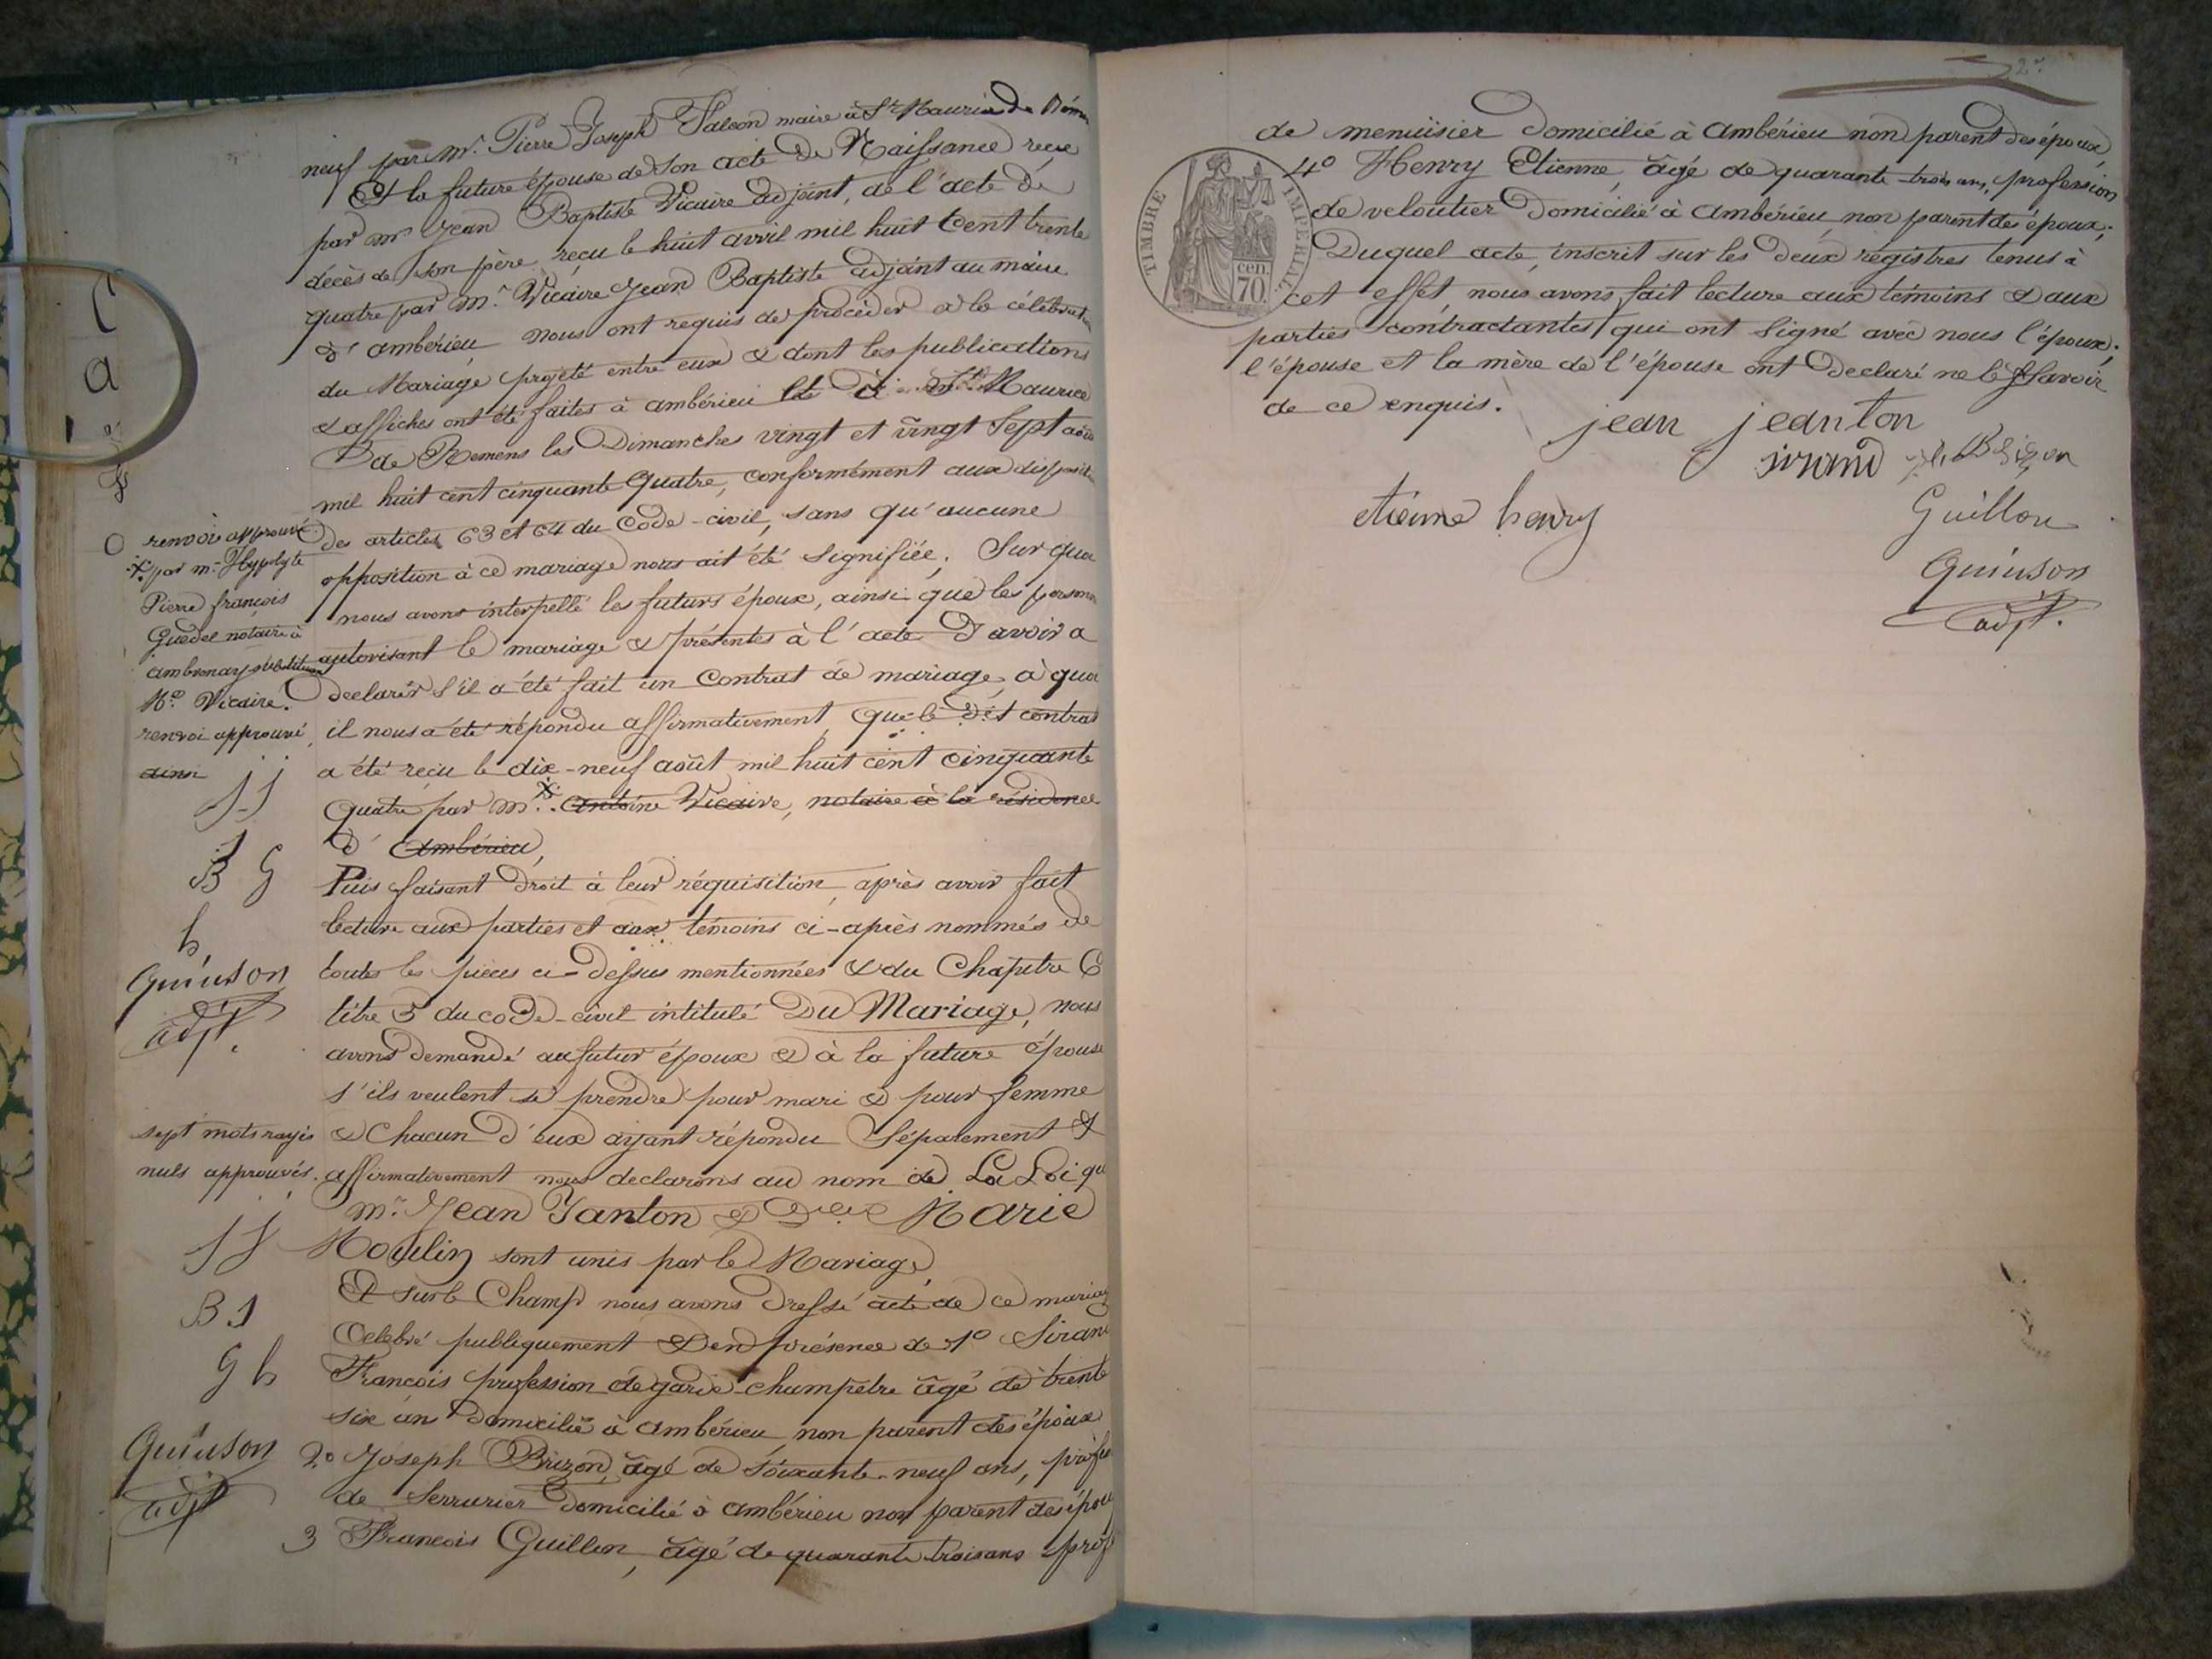 neuf par Mr. Pierre Joseph Falcon maire à St Maurice de Rémens
Et la future épouse de son acte de Naissance reçu
par mr Jean Baptiste Vicaire adjoint, de l'acte de
décès de son père reçu le huit avril mil huit Cent trente
quatre par Mr. Vicaire Jean Baptiste adjoint au maire
d'ambérieu nous ont requis de procéder à la célébration
du Mariage projeté entre eux & dont les publications
& affiches ont été faites à ambérieu & à St. Maurice
de Remens les Dimanches vingt et vingt Sept août
mil huit cent cinquante Quatre, conformément aux disposit
des articles 63 et 64 du Code-civil, sans qu'aucune
opposition à ce mariage nous ait été Signifiée. Sur quoi
nous avons interpellé les futurs époux, ainsi que les person
autorisant le mariage & présentes à l'acte D'avoir a
declarer s'il a été fait un Contrat de mariage, à quoi
il nous a été répondu affirmativement, que le dit contrat
a été reçu le dix-neuf août mil huit cent cinquante
Quatre par mr. Antoine Vicaire, notaire à la résidence
d'Ambérieu,
Puis faisant Droit à leur réquisition, après avoir fait
lecture aux parties et aux témoins ci-après nommés de
toutes les pièces ci-dessus mentionnées & du Chapitre 6
titre 5 du code-civil intitulé Du Mariage, nous
avons demandé au futur époux & à la future épouse
s'ils veulent se prendre pour mari & pour femme
& Chacun d'eux ayant répondu Séparement &
affirmativement nous declarons au nom de La Loi qu
mr. Jean Janton & Delle Marie
Moulin sont unis par le Mariage,
Et sur le Champ nous avons dressé acte de ce mariag
Celebré publiquement & en présence de 1o Sirand
François profession de garde-champêtre âgé de trente
six ans domicilié à ambérieu non parent des époux
2o Joseph Brizon, âgé de soixante-neuf ans, profes
de Serrurier domicilié à ambérieu non parent des épou
3 François Guillon, âgé de quarante trois ans prof
renvois approuvé
x par mr Hypolyte
Pierre françois
Guedel notaire à
ambronay substituant
Me. Vicaire.
renvoi approuvé
ainsi
JJ
B G
h
Quinson
adjt.
sept mots rayés
nuls approuvés.
JJ
B S
G h
Quinson
adjt
2.
de menuisier domicilié à Ambérieu non parent des époux,
4o Henry Etienne, âgé de quarante-trois ans, profession
de veloutier domicilié à ambérieu, non parent des époux;
Duquel acte, inscrit sur les deux régistres tenus à
cet effet, nous avons fait lecture aux témoins & aux
parties contractantes qui ont Signé avec nous l'époux;
l'épouse et la mère de l'épouse ont déclaré ne le savoir
de ce enquis.
TIMBRE IMPERIAL
cen.
70.
jean jeanton
sirand
etienne henry
Guillon
Quinson
adjt.